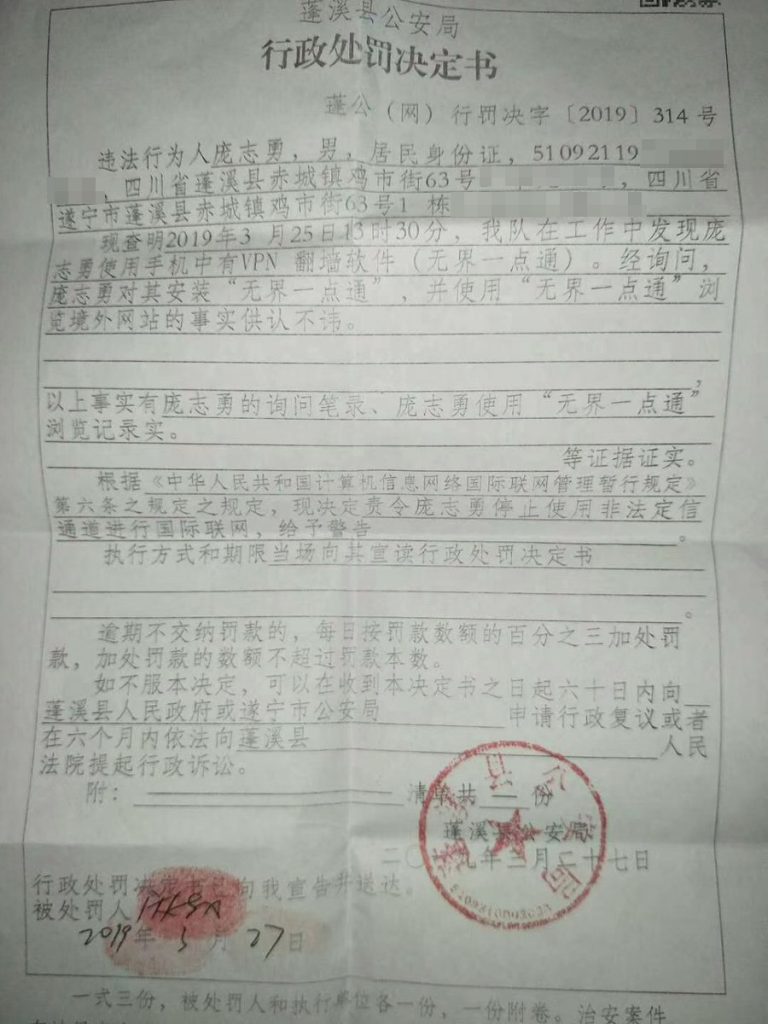 蓬溪县公安局
行政处罚决定书
蓬公（网）行罚决字〔2019〕314号
违法行为人庞志勇，男，居民身份证，51092119
，四川省蓬溪县赤城镇鸡市街63号，四川省
遂宁市蓬溪县赤城镇鸡市街63号1 栋
现查明2019年3 月25日13时30分，我队在工作中发现庞
志勇使用手机中有VPN 翻墙软件（无界一点通）。经询问，
庞志勇对其安装“无界一点通”，并使用“无界一点通”浏
览境外网站的事实供认不讳。
，
以上事实有庞志勇的询问笔录、庞志勇使用“无界一点通”
浏览记录实。
等证据证实。
根据《中华人民共和国计算机信息网络国际联网管理暂行规定》
第六条之规定之规定，现决定责令庞志勇停止使用非法定信
通道进行国际联网，给予警告。
执行方式和期限当场向其宣读行政处罚决定书
。
逾期不交纳罚款的，每日按罚款数额的百分之三加处罚
款，加处罚款的数额不超过罚款本数。
如不服本决定，可以在收到本决定书之日起六十日内向
蓬溪县人民政府或遂宁市公安局 申请行政复议或者
在六个月内依法向蓬溪县 人民
法院提起行政诉讼。
附： 清单共 份
蓬溪县公安局
二〇一九年三月二十七日
行政处罚决定书已向我宣告并送达。
被处罚人
2019年3月27日
一式三份，被处罚人和执行单位各一份，一份附卷。治安案件